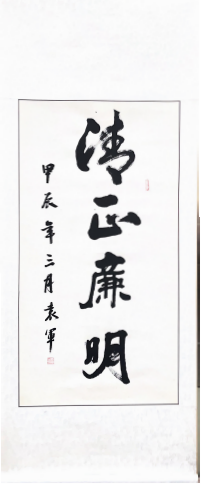 清正廉明
甲辰年三月袁軍